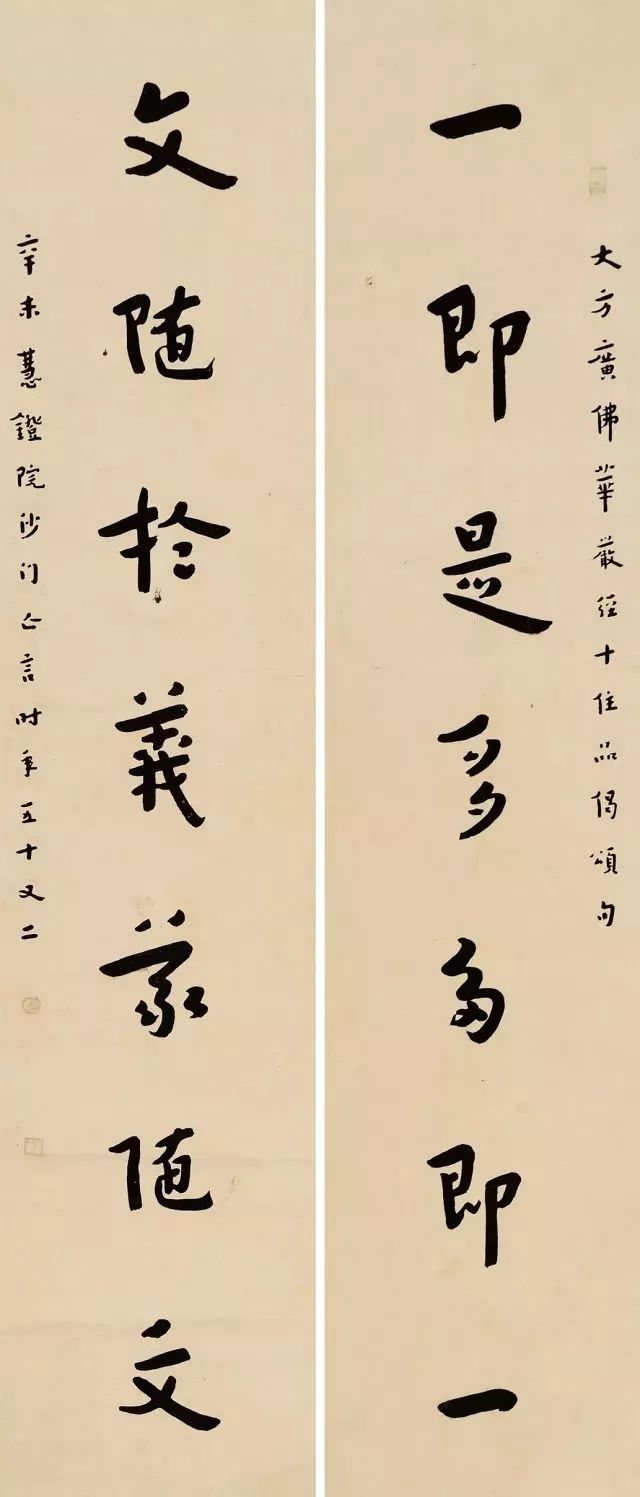 大方廣佛華嚴經十住品偈頌句
一即是多多即一
文隨於義義隨文
辛未慧鐙院沙门亡言时年五十又二